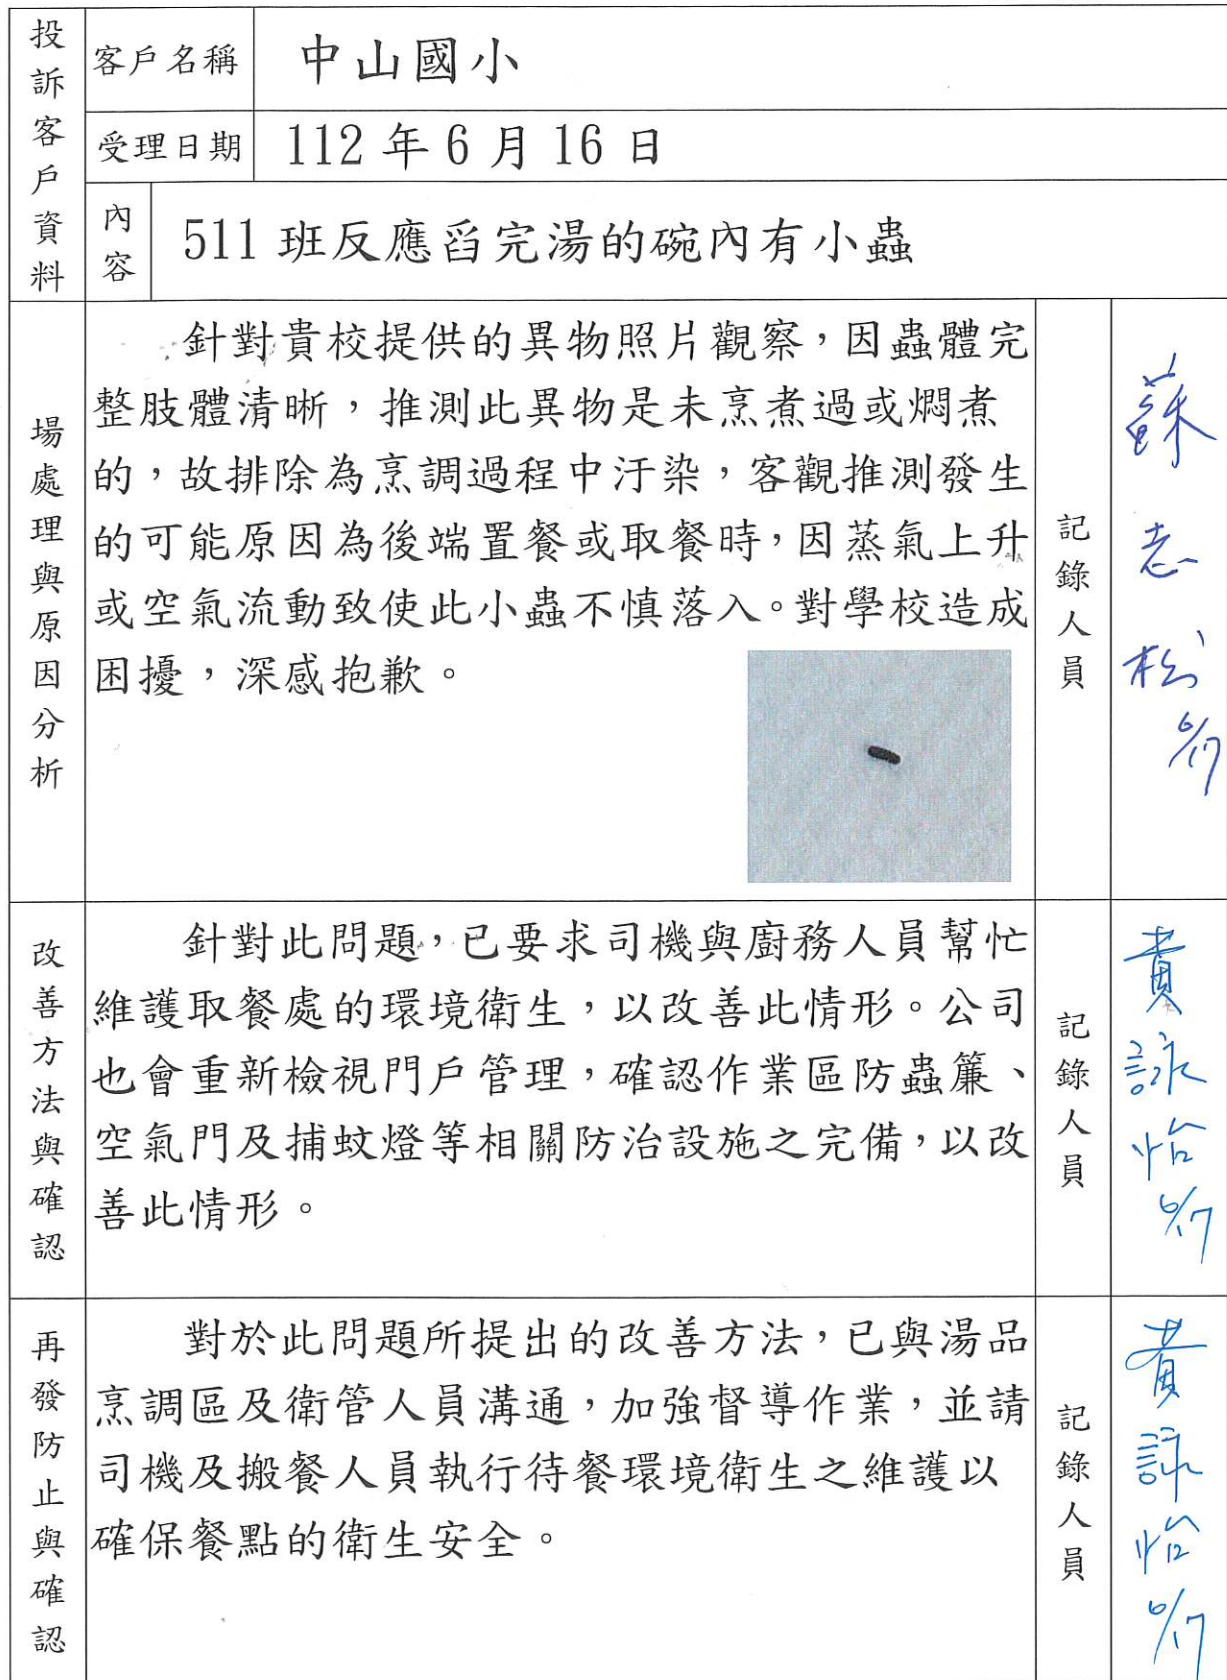 投訴客戶資料
客戶名稱
中山國小
受理日期
112年6月16日
內容
511班反應舀完湯的碗內有小蟲
場處理與原因分析
針對貴校提供的異物照片觀察，因蟲體完
整肢體清晰，推測此異物是未烹煮過或燜煮
的，故排除為烹調過程中汙染，客觀推測發生
的可能原因為後端置餐或取餐時，因蒸氣上升
或空氣流動致使此小蟲不慎落入。對學校造成
困擾，深感抱歉。
記錄人員
蘇志松
6/17
改善方法與確認
針對此問題，已要求司機與廚務人員幫忙
維護取餐處的環境衛生，以改善此情形。公司
也會重新檢視門戶管理，確認作業區防蟲簾、
空氣門及捕蚊燈等相關防治設施之完備，以改
善此情形。
記錄人員
黃詠怡
6/17
再發防止與確認
對於此問題所提出的改善方法，已與湯品
烹調區及衛管人員溝通，加強督導作業，並請
司機及搬餐人員執行待餐環境衛生之維護以
確保餐點的衛生安全。
記錄人員
黃詠怡
6/17